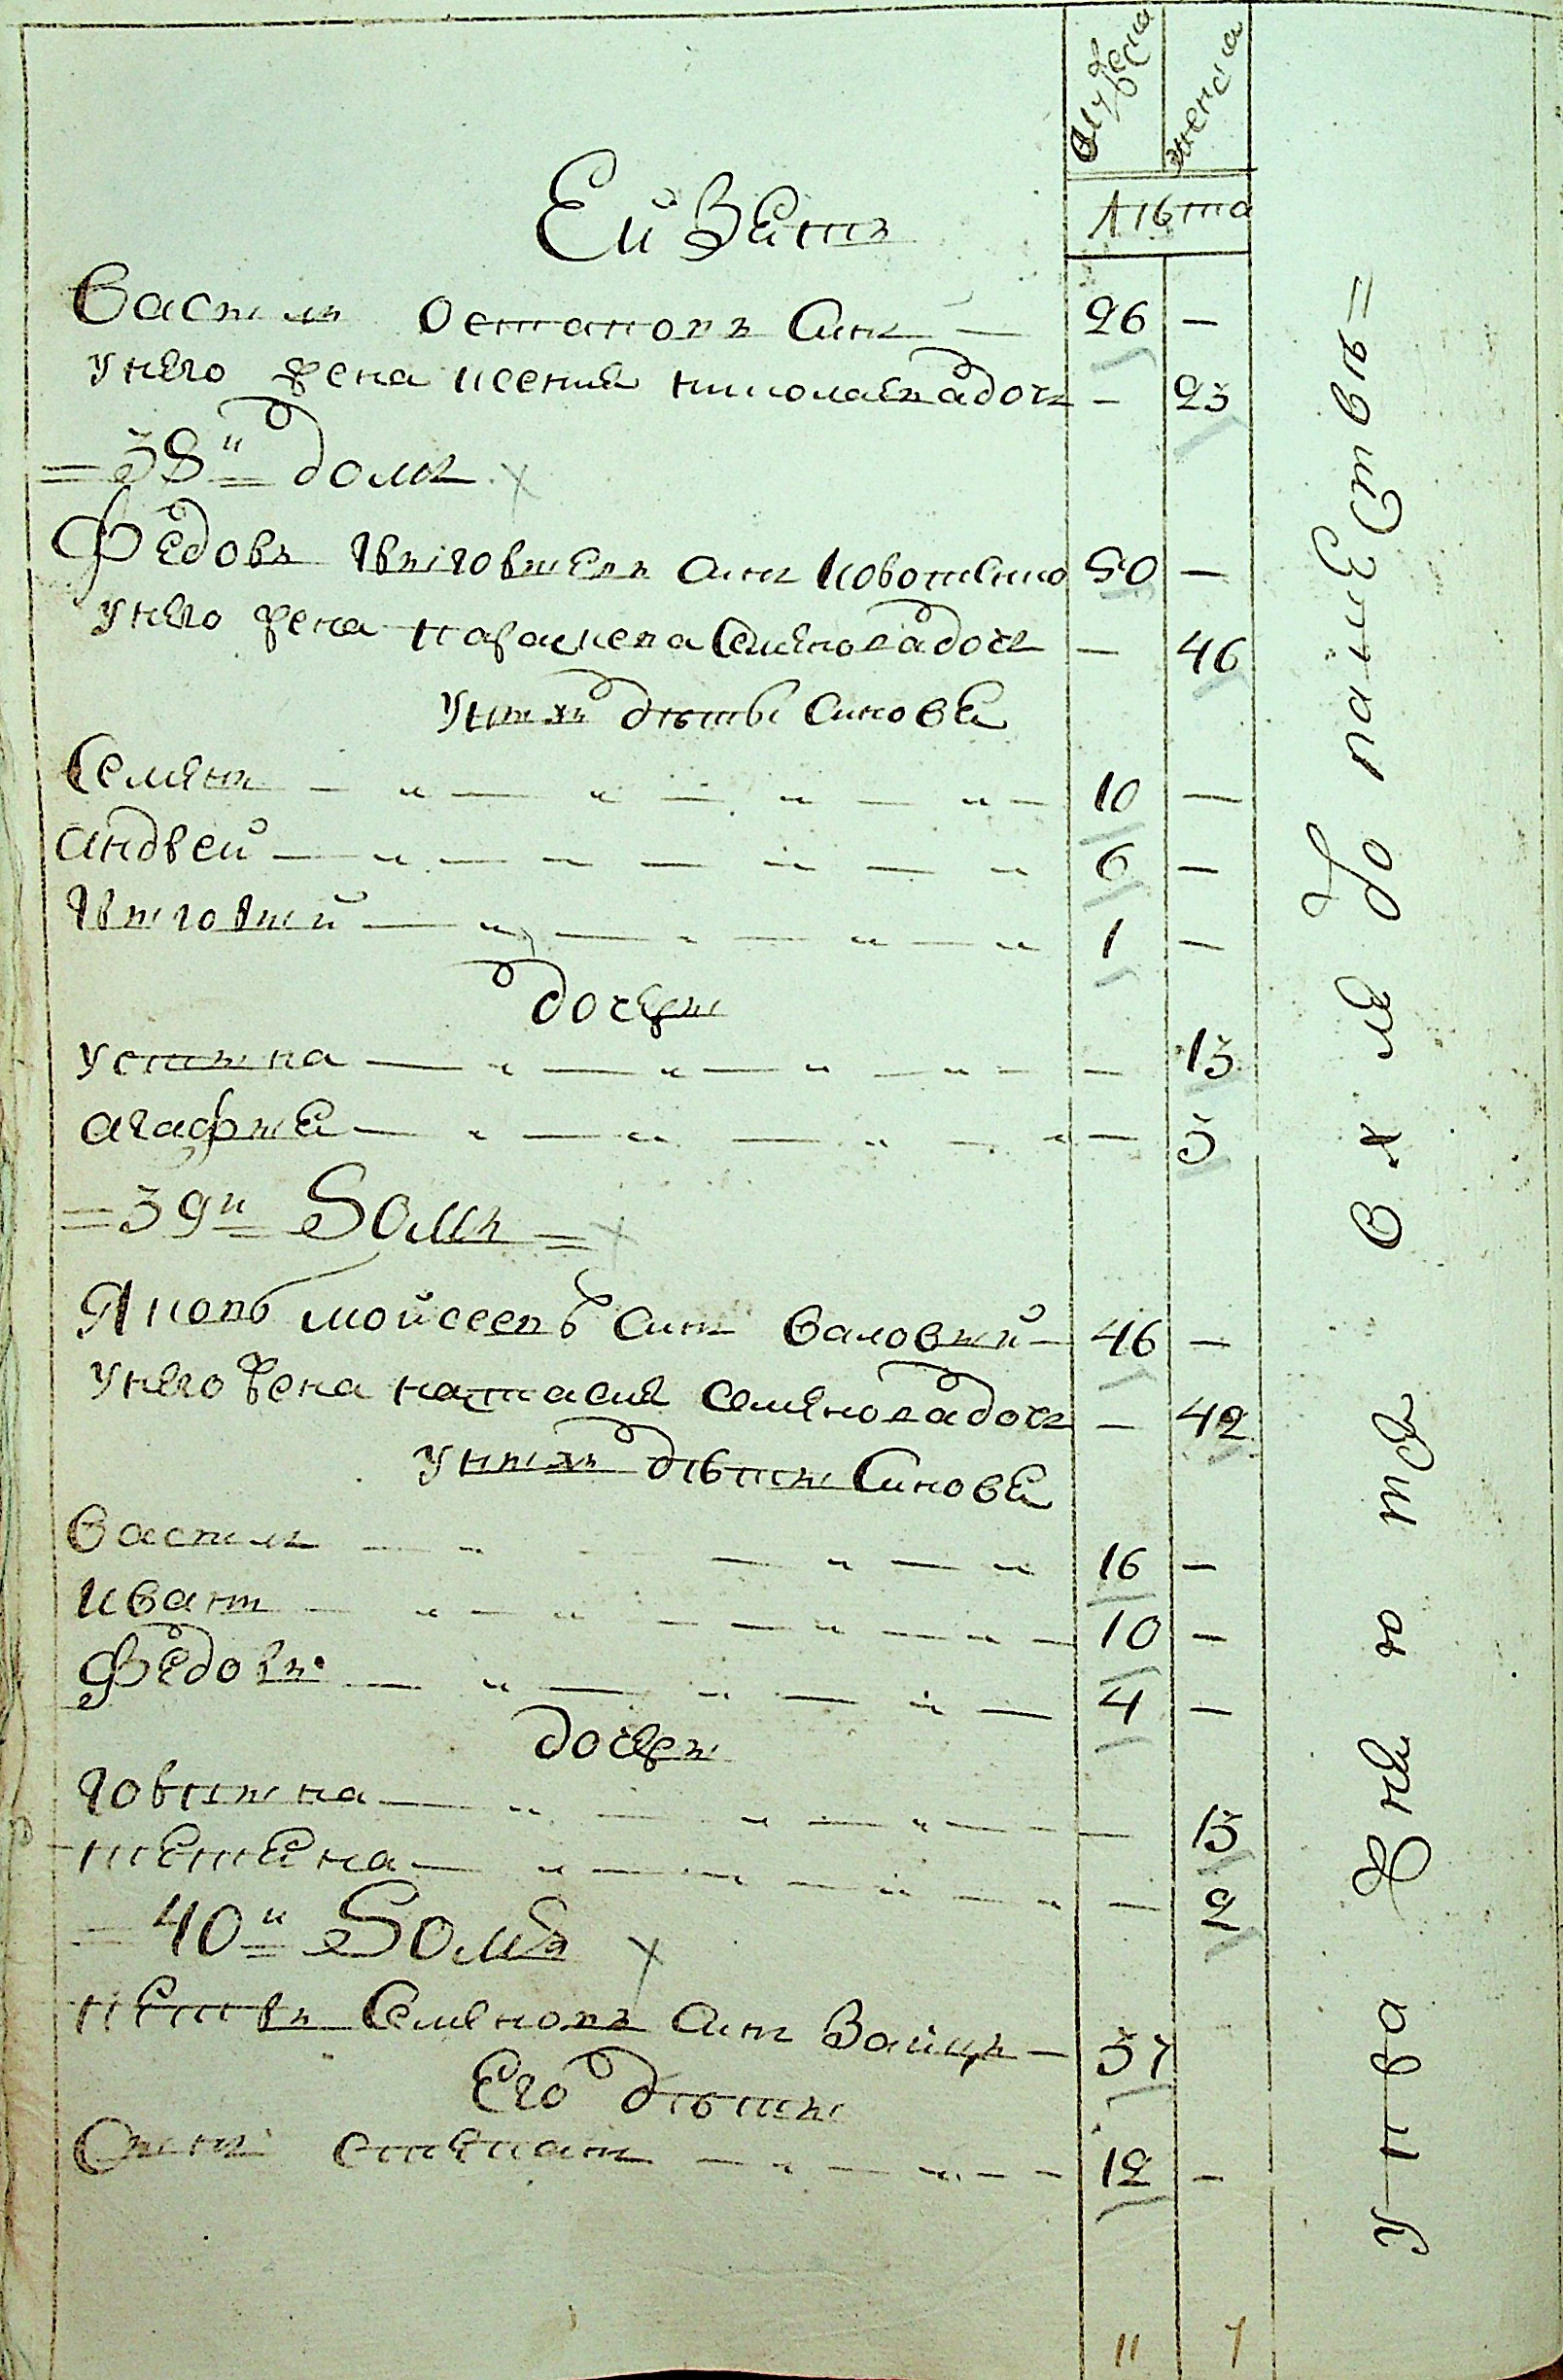 мужеска
женска
лѣта
Ей Зять
Василь Остаповъ Синъ — 26 —
У него жена ксения николаевадочь — 23
= 38й = домъ
Федоръ Григориевъ синъ Коволенко 50 —
У него жена параскева Семеновадочь — 46
У нихъ дѣты Синовя
Семенъ — 10 —
андрей — 6 —
Григорий — 1 —
дочери
Устина — 13
агафия — 3
= 39й = Домъ =
Яковъ мойсеевъ синъВаловий — 46 —
У него жена настасия Семеновадочь — 42
У нихъ дѣти Синовя
Василь — 16 —
иванъ — 10 —
Федоръ — 4 —
дочери
Говпина — 13
тетяна — 2
= 40й = Домъ
петръ Семеновъ синъ Заицъ — 37
Его дѣти
Синъ степанъ — 12 —
11 7